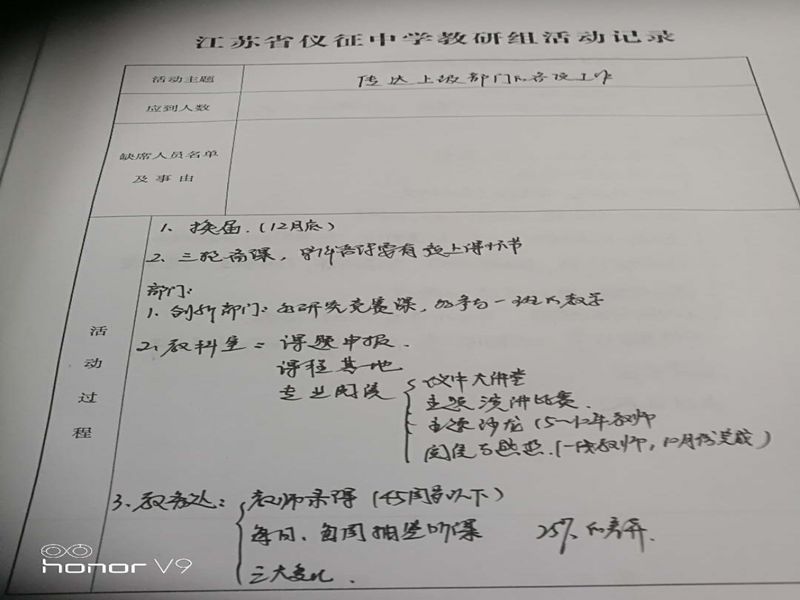 江苏省仪征中学教研组活动记录
活动主题 传达上级部门的各项工作
应到人数
缺席人员名单
及事由
活动过程
1、换届.(12月底)
2、三轮备课,
部门:
1、创新部门: ①研究竞赛课, ②参与一班的教学
2、教科室: 课题申报.
课程基地
专业阅读 仪中大讲堂
主题演讲比赛.
主题沙龙 (5~12年教师
阅读 (一线教师, 10月份完成)
3、教务处: 教师录课 (45周岁以下)
每日、每周抽签听课 25%
三大变化.
honor V9